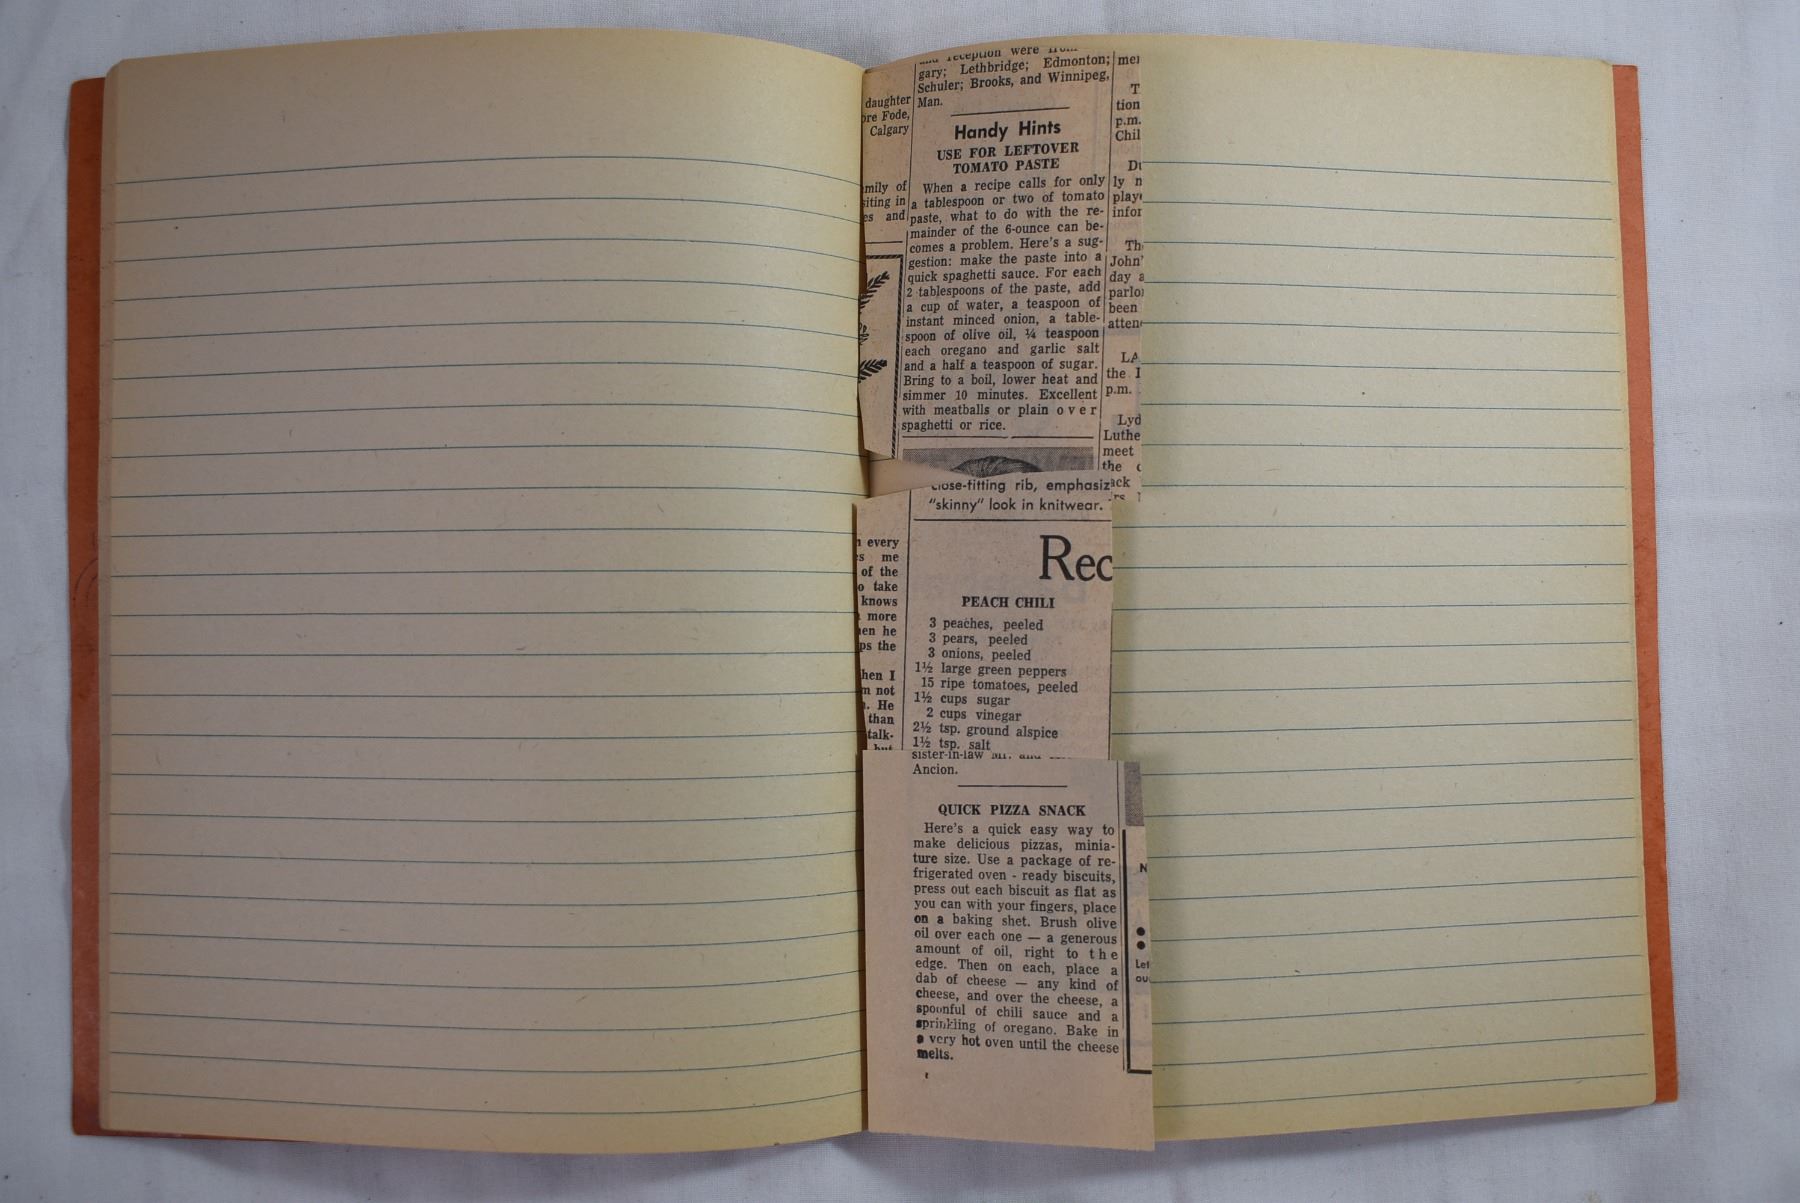 and reception were
gary; Lethbridge; Edmonton;
Schuler; Brooks, and Winnipeg,
Man.
Handy Hints
USE FOR LEFTOVER
TOMATO PASTE
When a recipe calls for only
a tablespoon or two of tomato
paste, what to do with the re-
mainder of the 6-ounce can be-
comes a problem. Here's a sug-
gestion: make the paste into a
quick spaghetti sauce. For each
2 tablespoons of the paste, add
a cup of water, a teaspoon of
instant minced onion, a table-
spoon of olive oil, ¼ teaspoon
each oregano and garlic salt
and a half a teaspoon of sugar.
Bring to a boil, lower heat and
simmer 10 minutes. Excellent
with meatballs or plain over
spaghetti or rice.
daughter
ore Fode,
Calgary
mily of
siting in
es and
mer
T
tion
p.m.
Chil
Du
ly n
play
infor
Th
John'
day a
parlo
been
atten
LA
the
p.m.
Lyd
Luthe
meet
the
ack
close-fitting rib, emphasiz
"skinny" look in knitwear.
Rec
PEACH CHILI
3 peaches, peeled
3 pears, peeled
3 onions, peeled
1½ large green peppers
15 ripe tomatoes, peeled
1½ cups sugar
2 cups vinegar
2½ tsp. ground alspice
1½ tsp. salt
every
s me
of the
o take
knows
more
en he
ps the
hen I
m not
. He
than
talk-
but
sister-in-law Mr. and
Ancion.
QUICK PIZZA SNACK
Here's a quick easy way to
make delicious pizzas, minia-
ture size. Use a package of re-
frigerated oven - ready biscuits,
press out each biscuit as flat as
you can with your fingers, place
on a baking shet. Brush olive
oil over each one — a generous
amount of oil, right to the
edge. Then on each, place a
dab of cheese — any kind of
cheese, and over the cheese, a
spoonful of chili sauce and a
sprinkling of oregano. Bake in
a very hot oven until the cheese
melts.
N
Let
ou